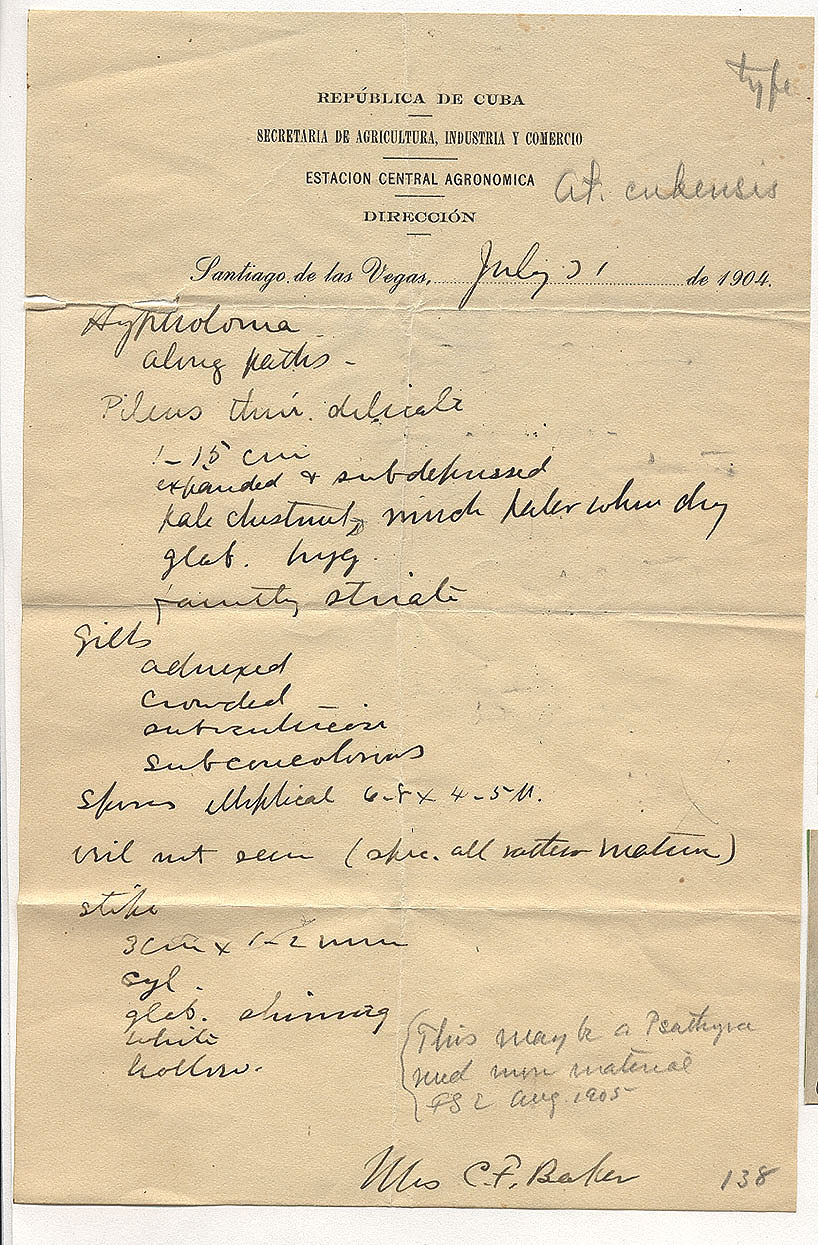 type
REPÚBLICA DE CUBA
SECRETARIA DE AGRICULTURA, INDUSTRIA Y COMERCIO
ESTACION CENTRAL AGRONOMICA
at. cubensis
DIRECCIÓN
Santiago de las Vegas, July 31 de 1904.
Hypholoma
along paths -
Pileus thin. delicate
1-15 cm
expanded & subdepressed
pale chestnut, much paler when dry
glab. hyg.
faintly striate
Gills
adnexed
crowded
subventricose
subconcolorous
Spores elliptical 6-8 x 4-5 µ.
veil not seen (spec. all rather mature)
stipe
3cm x 1-2 mm
cyl.
glab. shining
white
hollow.
This may be a Psathyra
need more material
FSE Aug. 1905
Mrs C.F. Baker
138